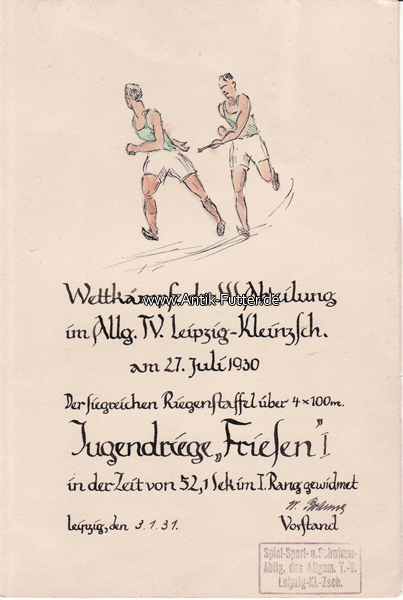 Wettkämpfe der Abteilung
www.Antik-Futter.de
im Allg. TV. Leipzig-Kleinzsch.
am 27. Juli 1930
Der siegreichen Riegenstaffel über 4×100m.
Jugendriege „Friesen" I
in der Zeit von 52,1 Sek im I. Rang gewidmet
Leipzig, den 3.1.31.
Vorstand
Spiel-Sport- u. Schwimm-
Abtlg. des Allgem. T.-V.
Leipzig-Kl.-Zsch.